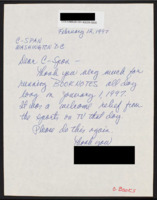 February 12, 1997
C-SPAN
WASHINGTON D.C.
Dear C-Span -
Thank you very much for
running BOOKNOTES all day
long on January 1, 1997.
It was a welcome relief from
the sports on TV that day.
Please do this again.
Thank you